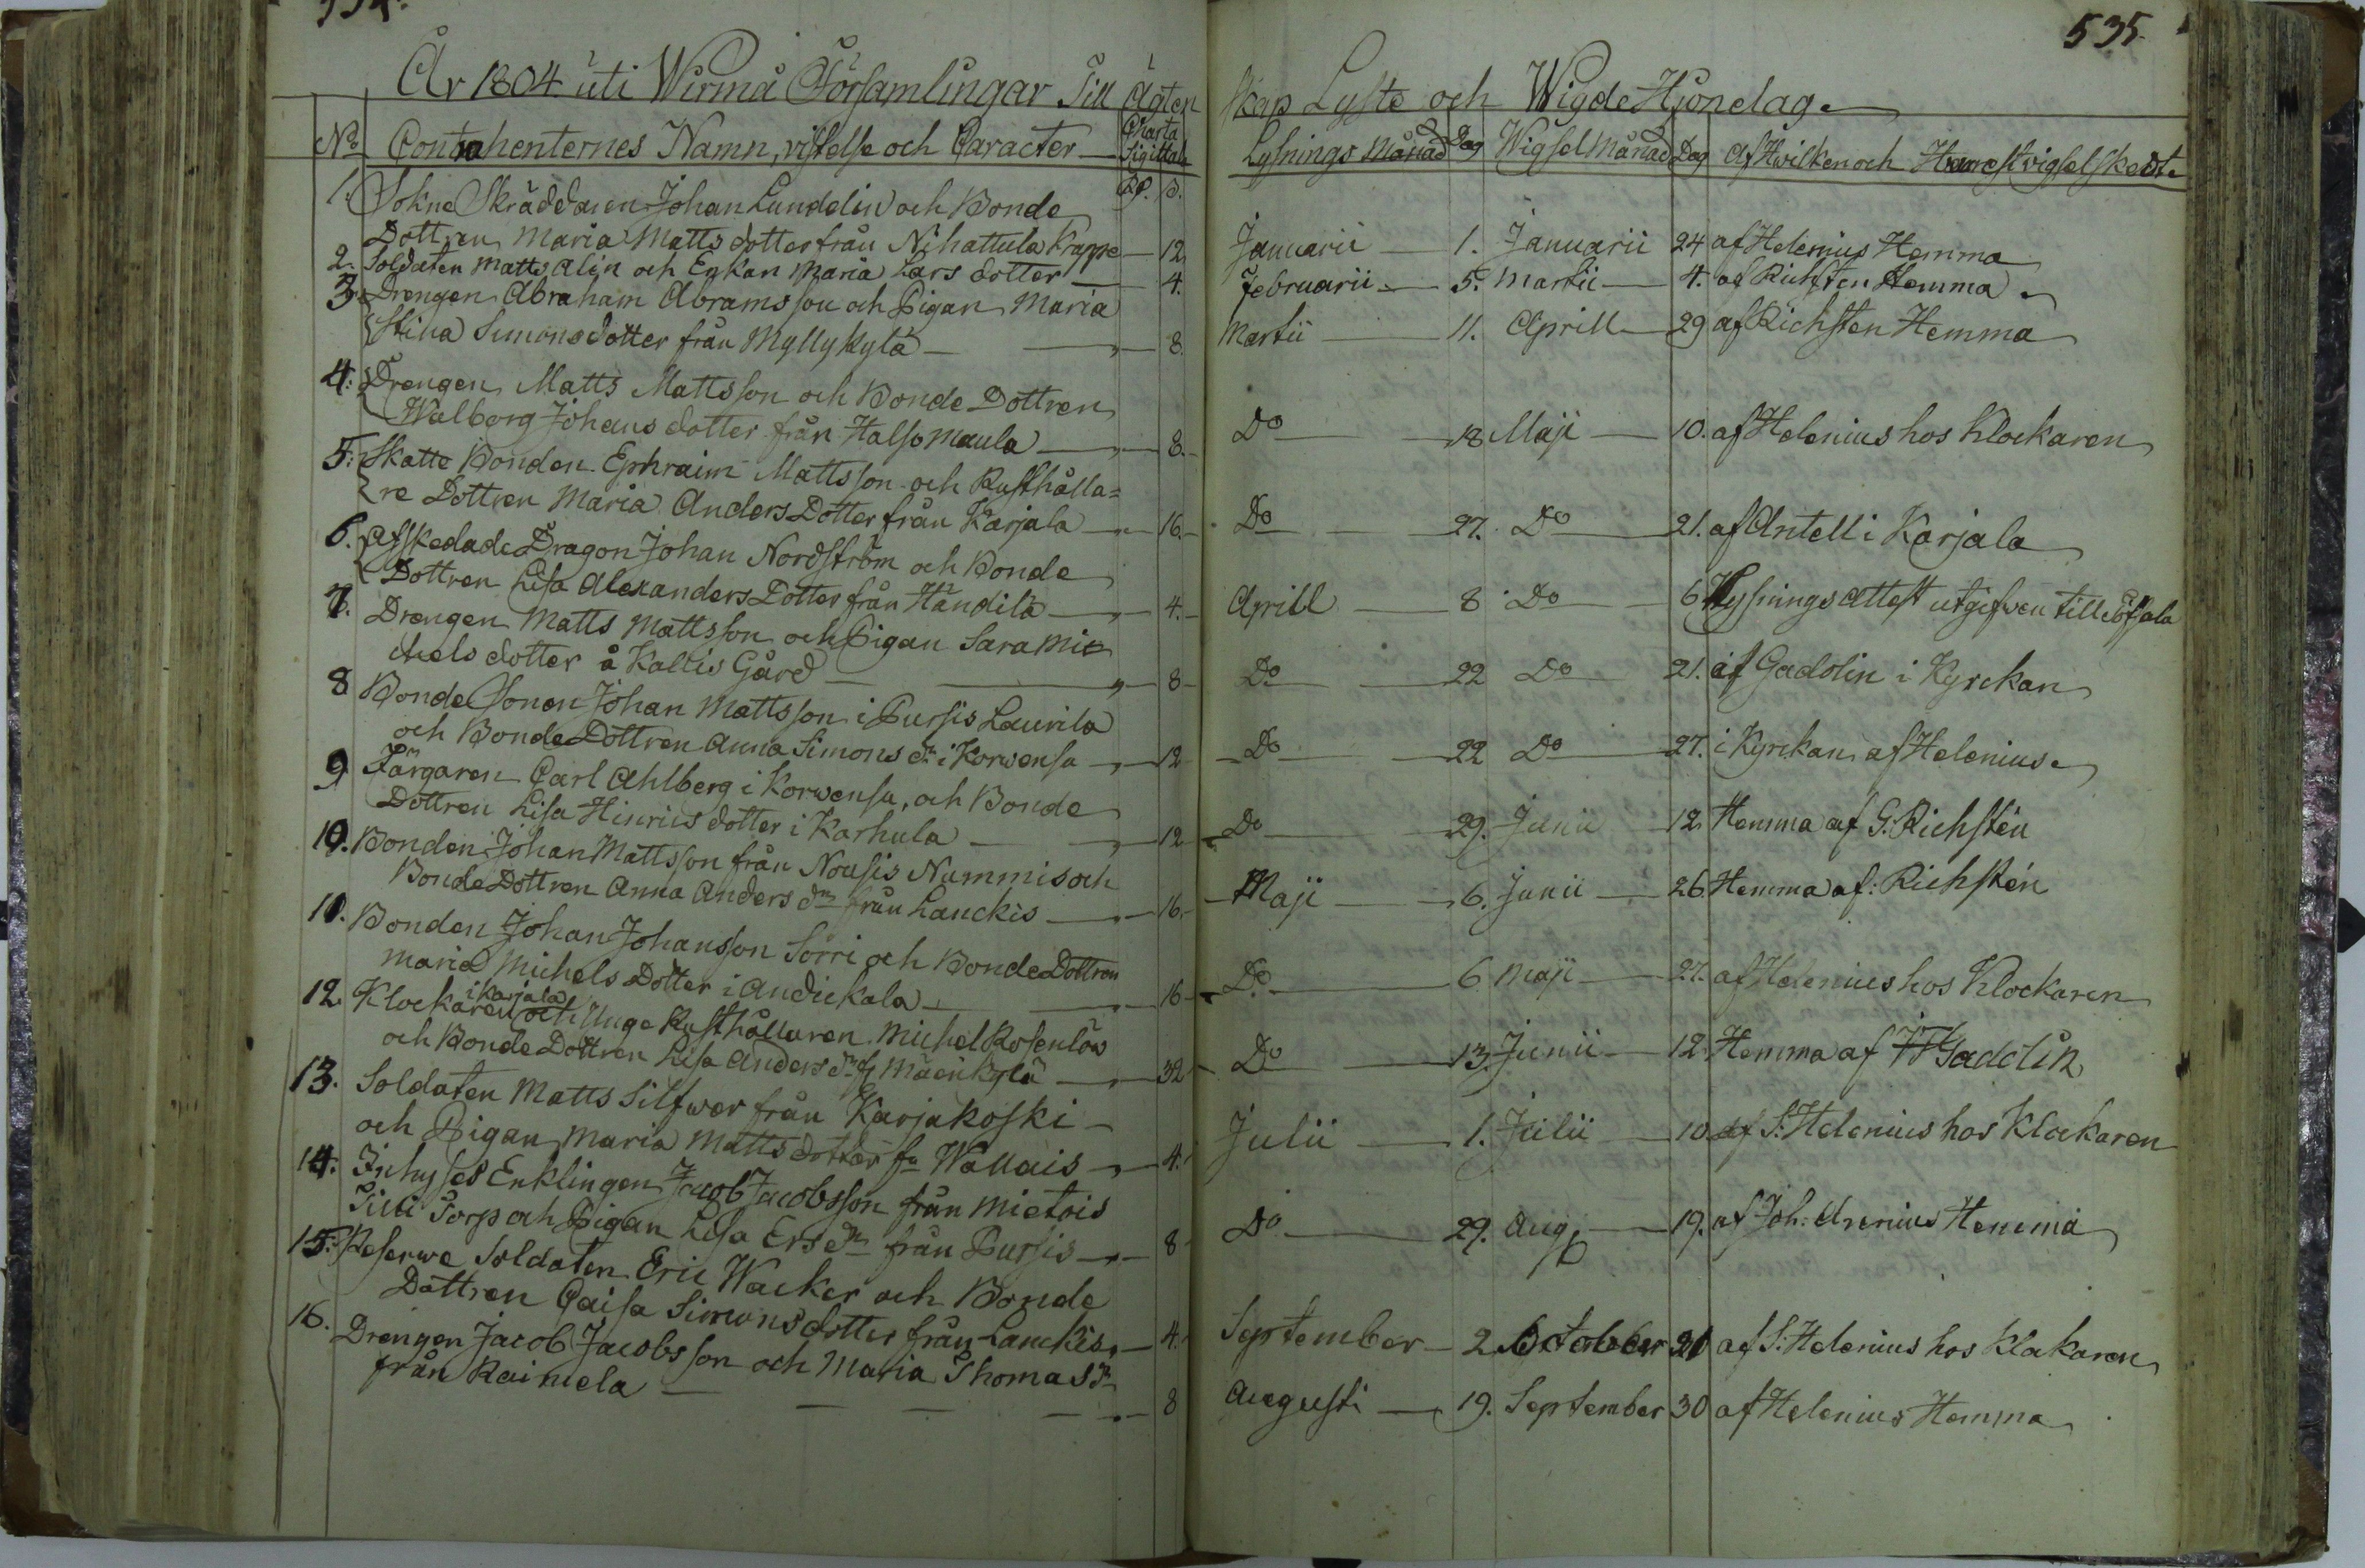 535.
År 1804 uti Wirmå Församlingar Till Ägten
skap Lyste och Wigde Hjonelag.
No Contrahenternes Namn, vistelse och Caracter Charta Sigillata
Rd. s.
Lysnings Månad Dag Wigsel Månad Dag Af Hwilken och Hwarest vigsel skedt.
1. Sokne Skräddaren Johan Lundelin och Bonde
Dottren Maria Matts dotter från Nihattula Krappe 12
Januarii 1. Januarii 24 af Helenius Hemma
2. Soldaten Matts Alin och Enkan Maria Lars dotter 4.
Februarii 5. Martii 4. af Richsten Hemma
3. Drengen Abraham Abramsson och Pigan Maria
Stina Simonsdotter från Myllykylä 8.
Martii 11. Aprill 29 af Richsten Hemma
4. Drengen Matts Mattsson och Bonde Dottren
Walborg Johans dotter från Halso Maula 8.
Do 18 Maji 10. af Helenius hos Klockaren
5. Skatte Bonden Ephraim Mattsson och Rusthålla=
re Dottren Maria Anders Dotter från Karjala 16.
Do 27. Do 21. af Antell i Karjala
6. Afskedade Dragon Johan Nordström och Bonde
Dottren Lisa Alexanders Dotter från Händilä 4.
Aprill 8 Do 6 Lysnings attest utgifwen till
7. Drengen Matts Mattsson och Pigan Sara Mi
chels dotter å Kallis Gård 8
Do 22 Do 21. af Gadolin i Kyrckan
8 Bonde Sonen Johan Mattsson i Pursis Laurila
och Bonde Dottren Anna Simons dr i Korwensu 12
Do 22 Do 27. i Kyrckan af Helenius.
9 Färgaren Carl Ahlberg i Korwensu, och Bonde
Dottren Lisa Hinrics dotter i Karhula 12
Do 29. Junii 12 Hemma af G. Richstén
10. Bonden Johan Mattsson från Nousis Nummis och
Bonde Dottren Anna Anders dr från Lanckis 16.
Maji 6. Junii 26 Hemma af: Richstén
11. Bonden Johan Johansson Sorri och Bonde Dottren
Maria Michels Dotter i Andickala 16
Do 6 Maji 27. af Helenius hos Klockaren
i Karjala
12. Klockaren och Unge Rusthållaren Michel Rosenlöw
och Bonde Dottren Lisa Anders dr fr Mäenkylä 32
Do 13. Junii 12 Hemma af Gadolin
13. Soldaten Matts Silfwer från Karjakoski
och Pigan Maria Matts dotter fr Wallais 4.
Julii 1. Julii 10 af S. Helenius hos Klockaren
14. Inhyses Enklingen Jacob Jacobsson från Mietois
Torp och Pigan Lisa Ers dr från Pursis 8
Do 29. Aug 19. af Joh: Arenius Hemma
15. Reserwe Soldaten Eric Wacker och Bonde
Dottren Caisa Simons dotter från Lanckis 4.
September 2 October 21 af S: Helenius hos Klockaren
16. Drengen Jacob Jacobsson och Maria Thomas dr
från Raimela 8
Augusti 19. September 30 af Helenius Hemma